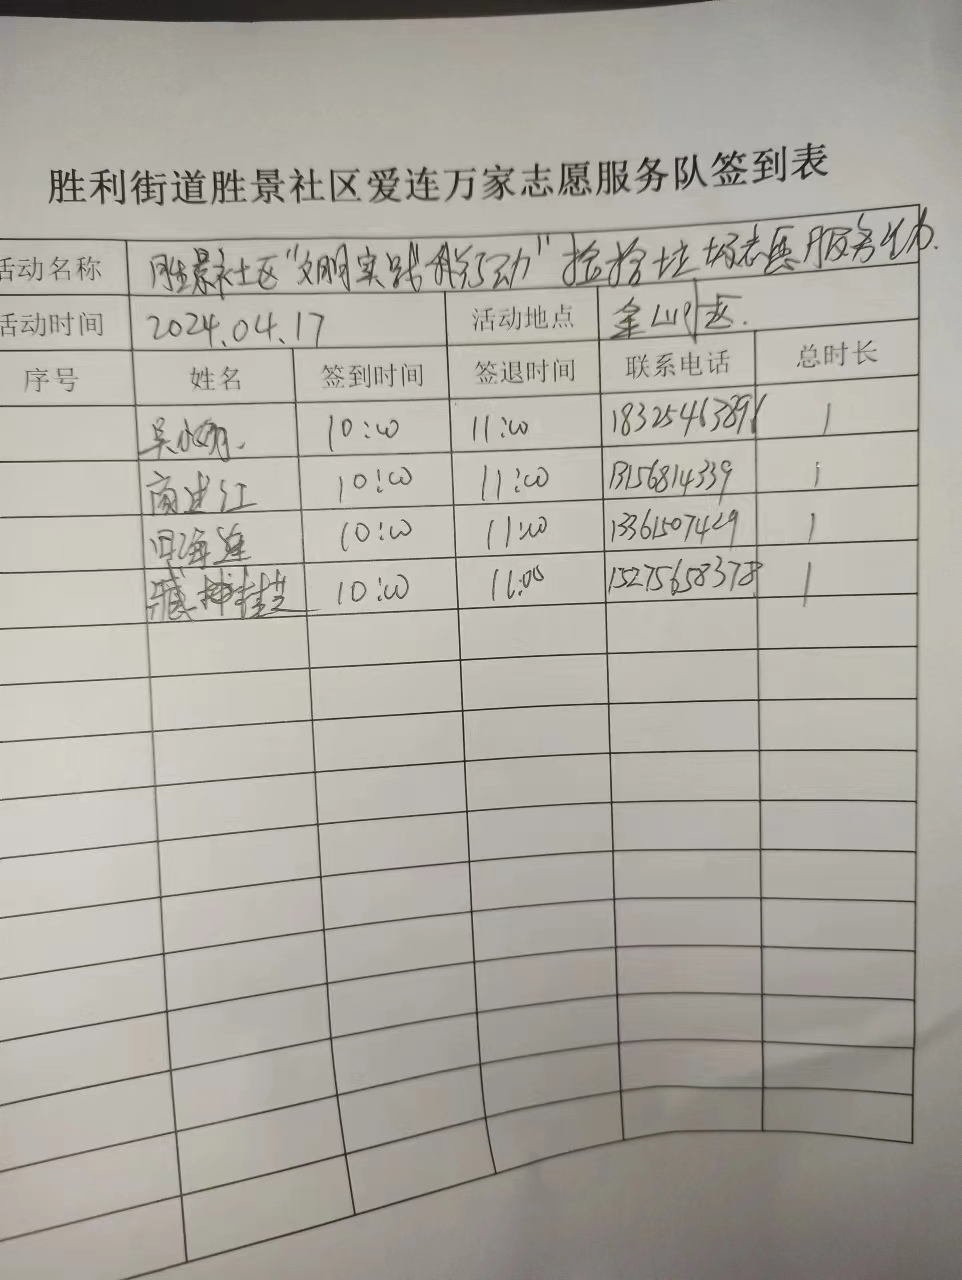 胜利街道胜景社区爱连万家志愿服务队签到表
活动名称 胜景社区“文明实践我行动”捡拾垃圾志愿服务活动.
活动时间 2024.04.17 活动地点
序号 姓名 签到时间 签退时间 联系电话 总时长
吴 10:00 11:00 1 
商建江 10:00 11:00 13156814339 1
田海莲 10:00 11:00 13361507429 1
10:00 11:00 15275658378 1